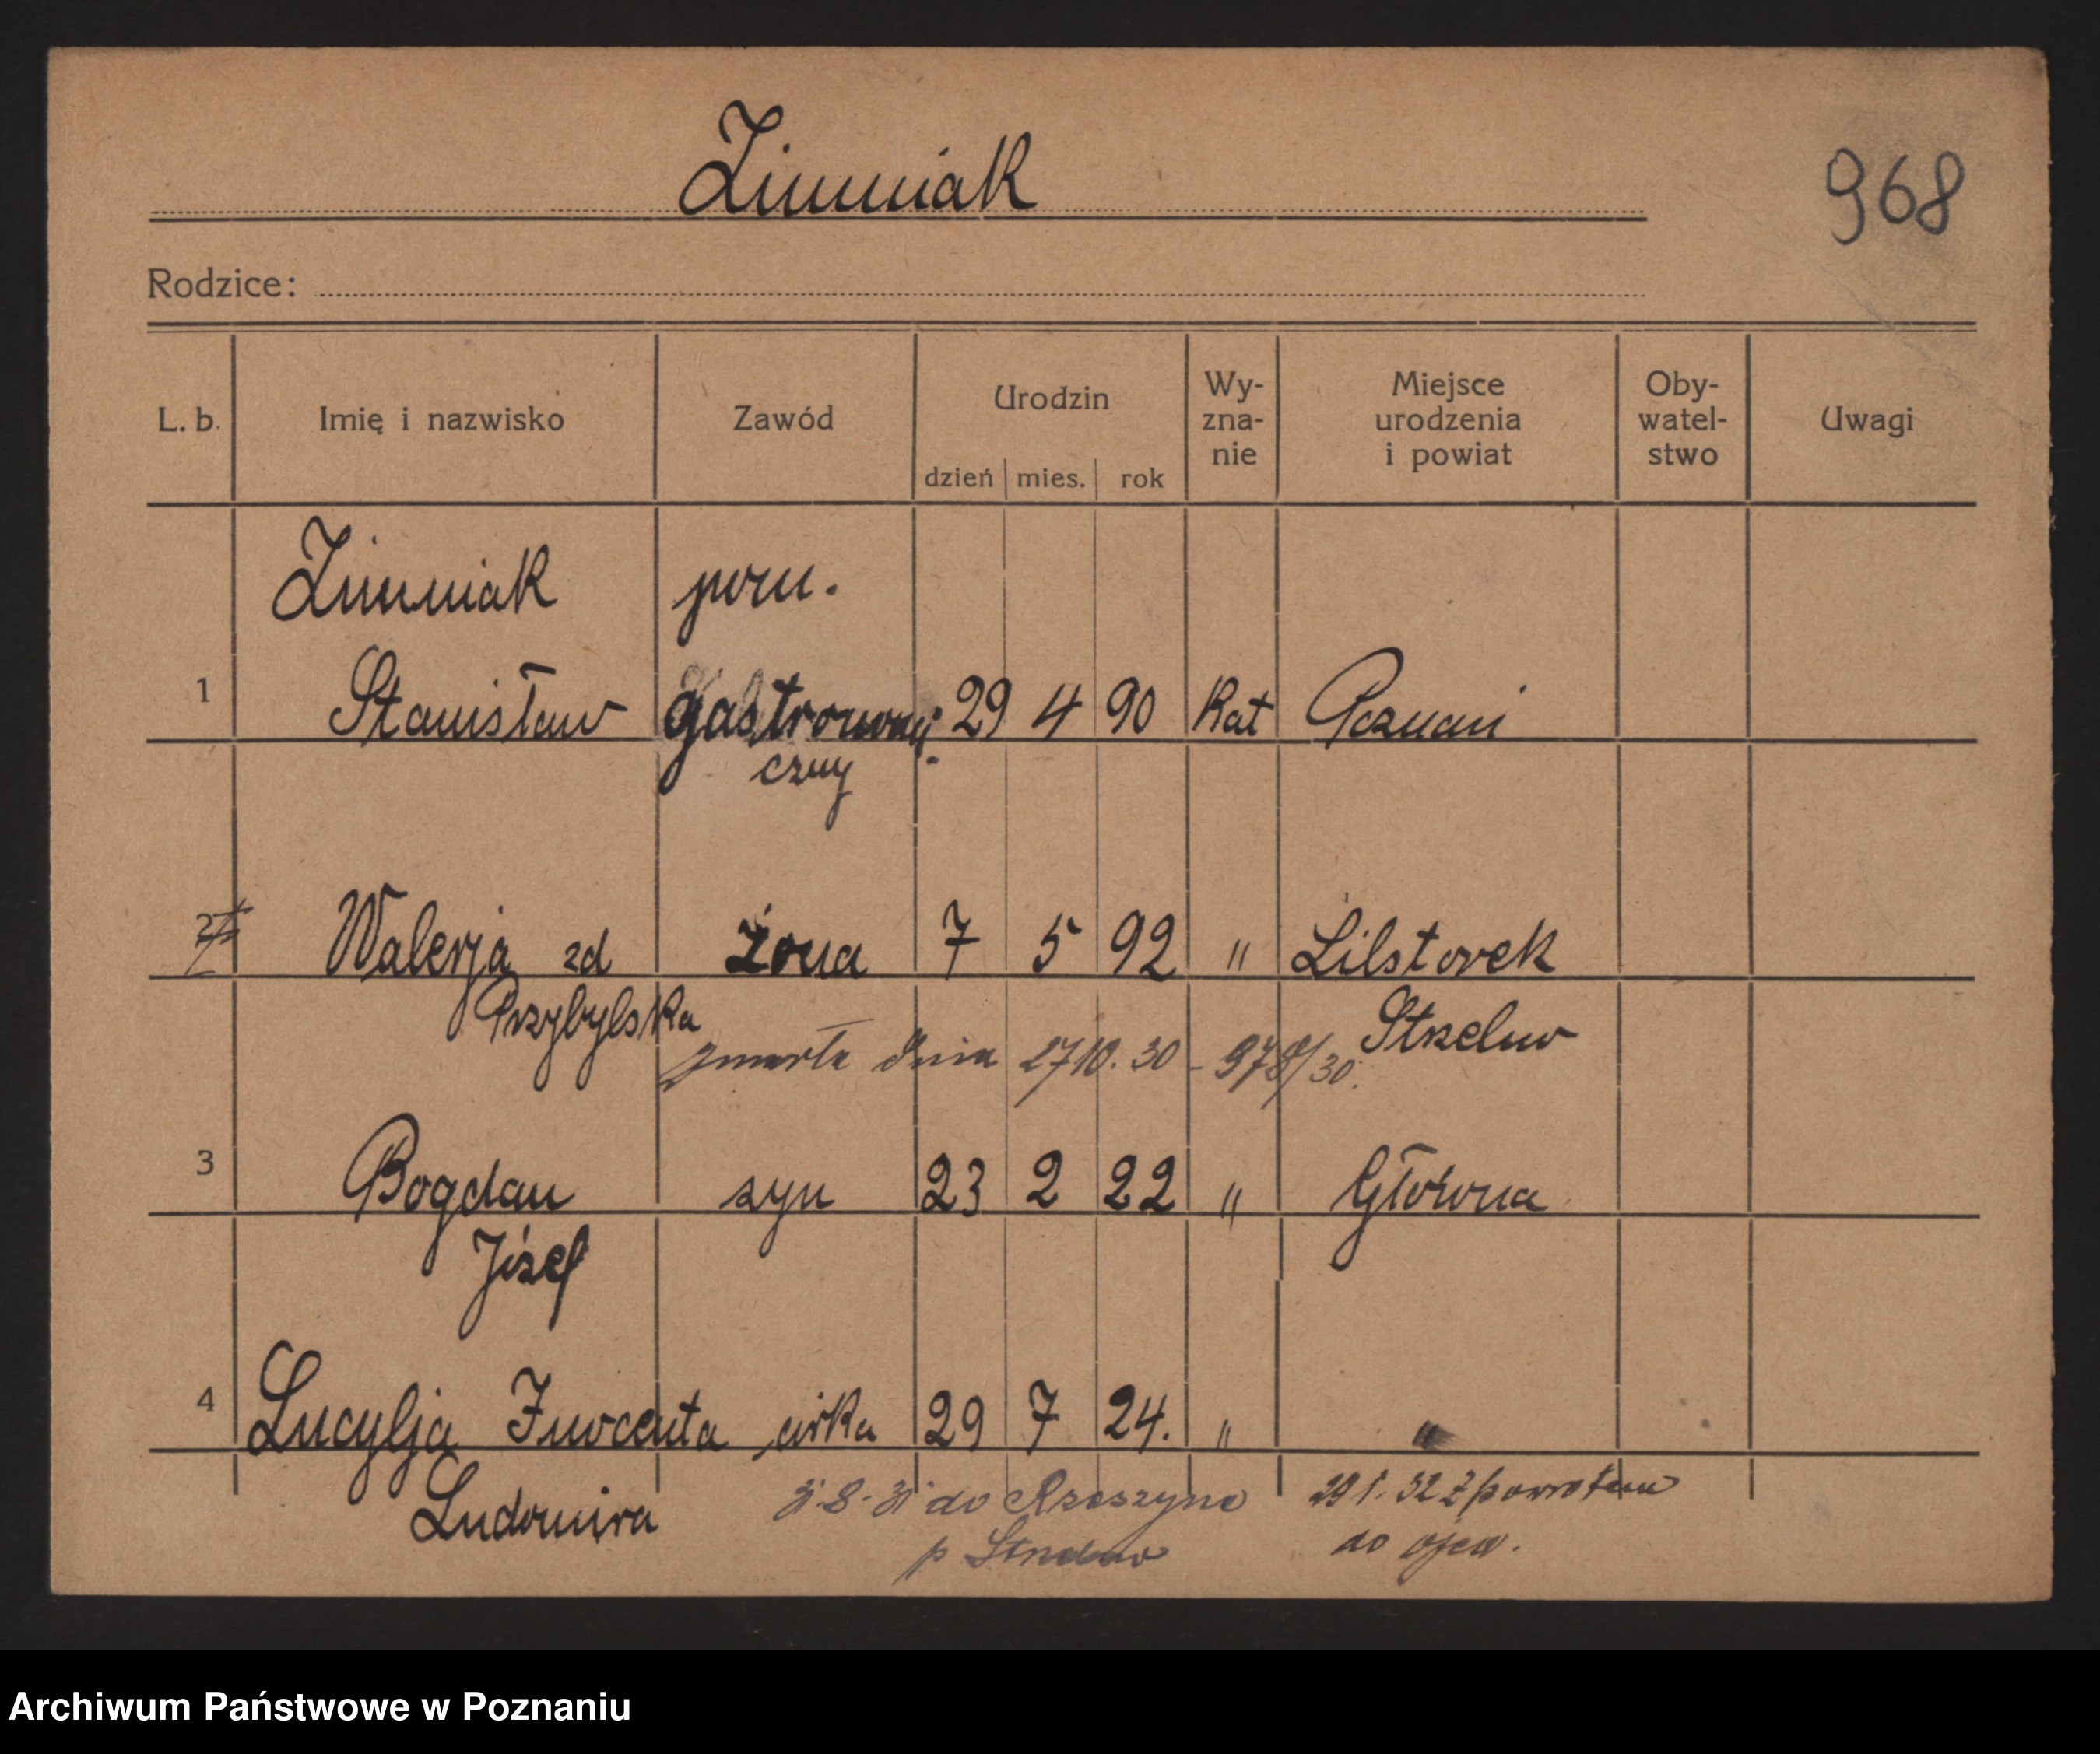 Zimniak
968
Rodzice:
L. b. Imię i nazwisko Zawód Urodzin dzień mies. rok Wy-zna-nie Miejsce urodzenia i powiat Oby-watel-stwo Uwagi
Zimniak pom.
1 Stanisław gastronomi. 29 4 90 Kat Poznań
czny
2 Walerja zd żona 7 5 92 " Lilstorek
Przybylska Strzelno
zmarła dnia 27 10. 30 - 978/30.
3 Bogdan syn 23 2 22 " Główna
Józef
4 Lucylja Inocenta córka 29 7 24. " "
Ludomira
31.8.31 do Rzeszyna 29 1. 32 z powrotem
p Strzelno do ojca.
Archiwum Państwowe w Poznaniu